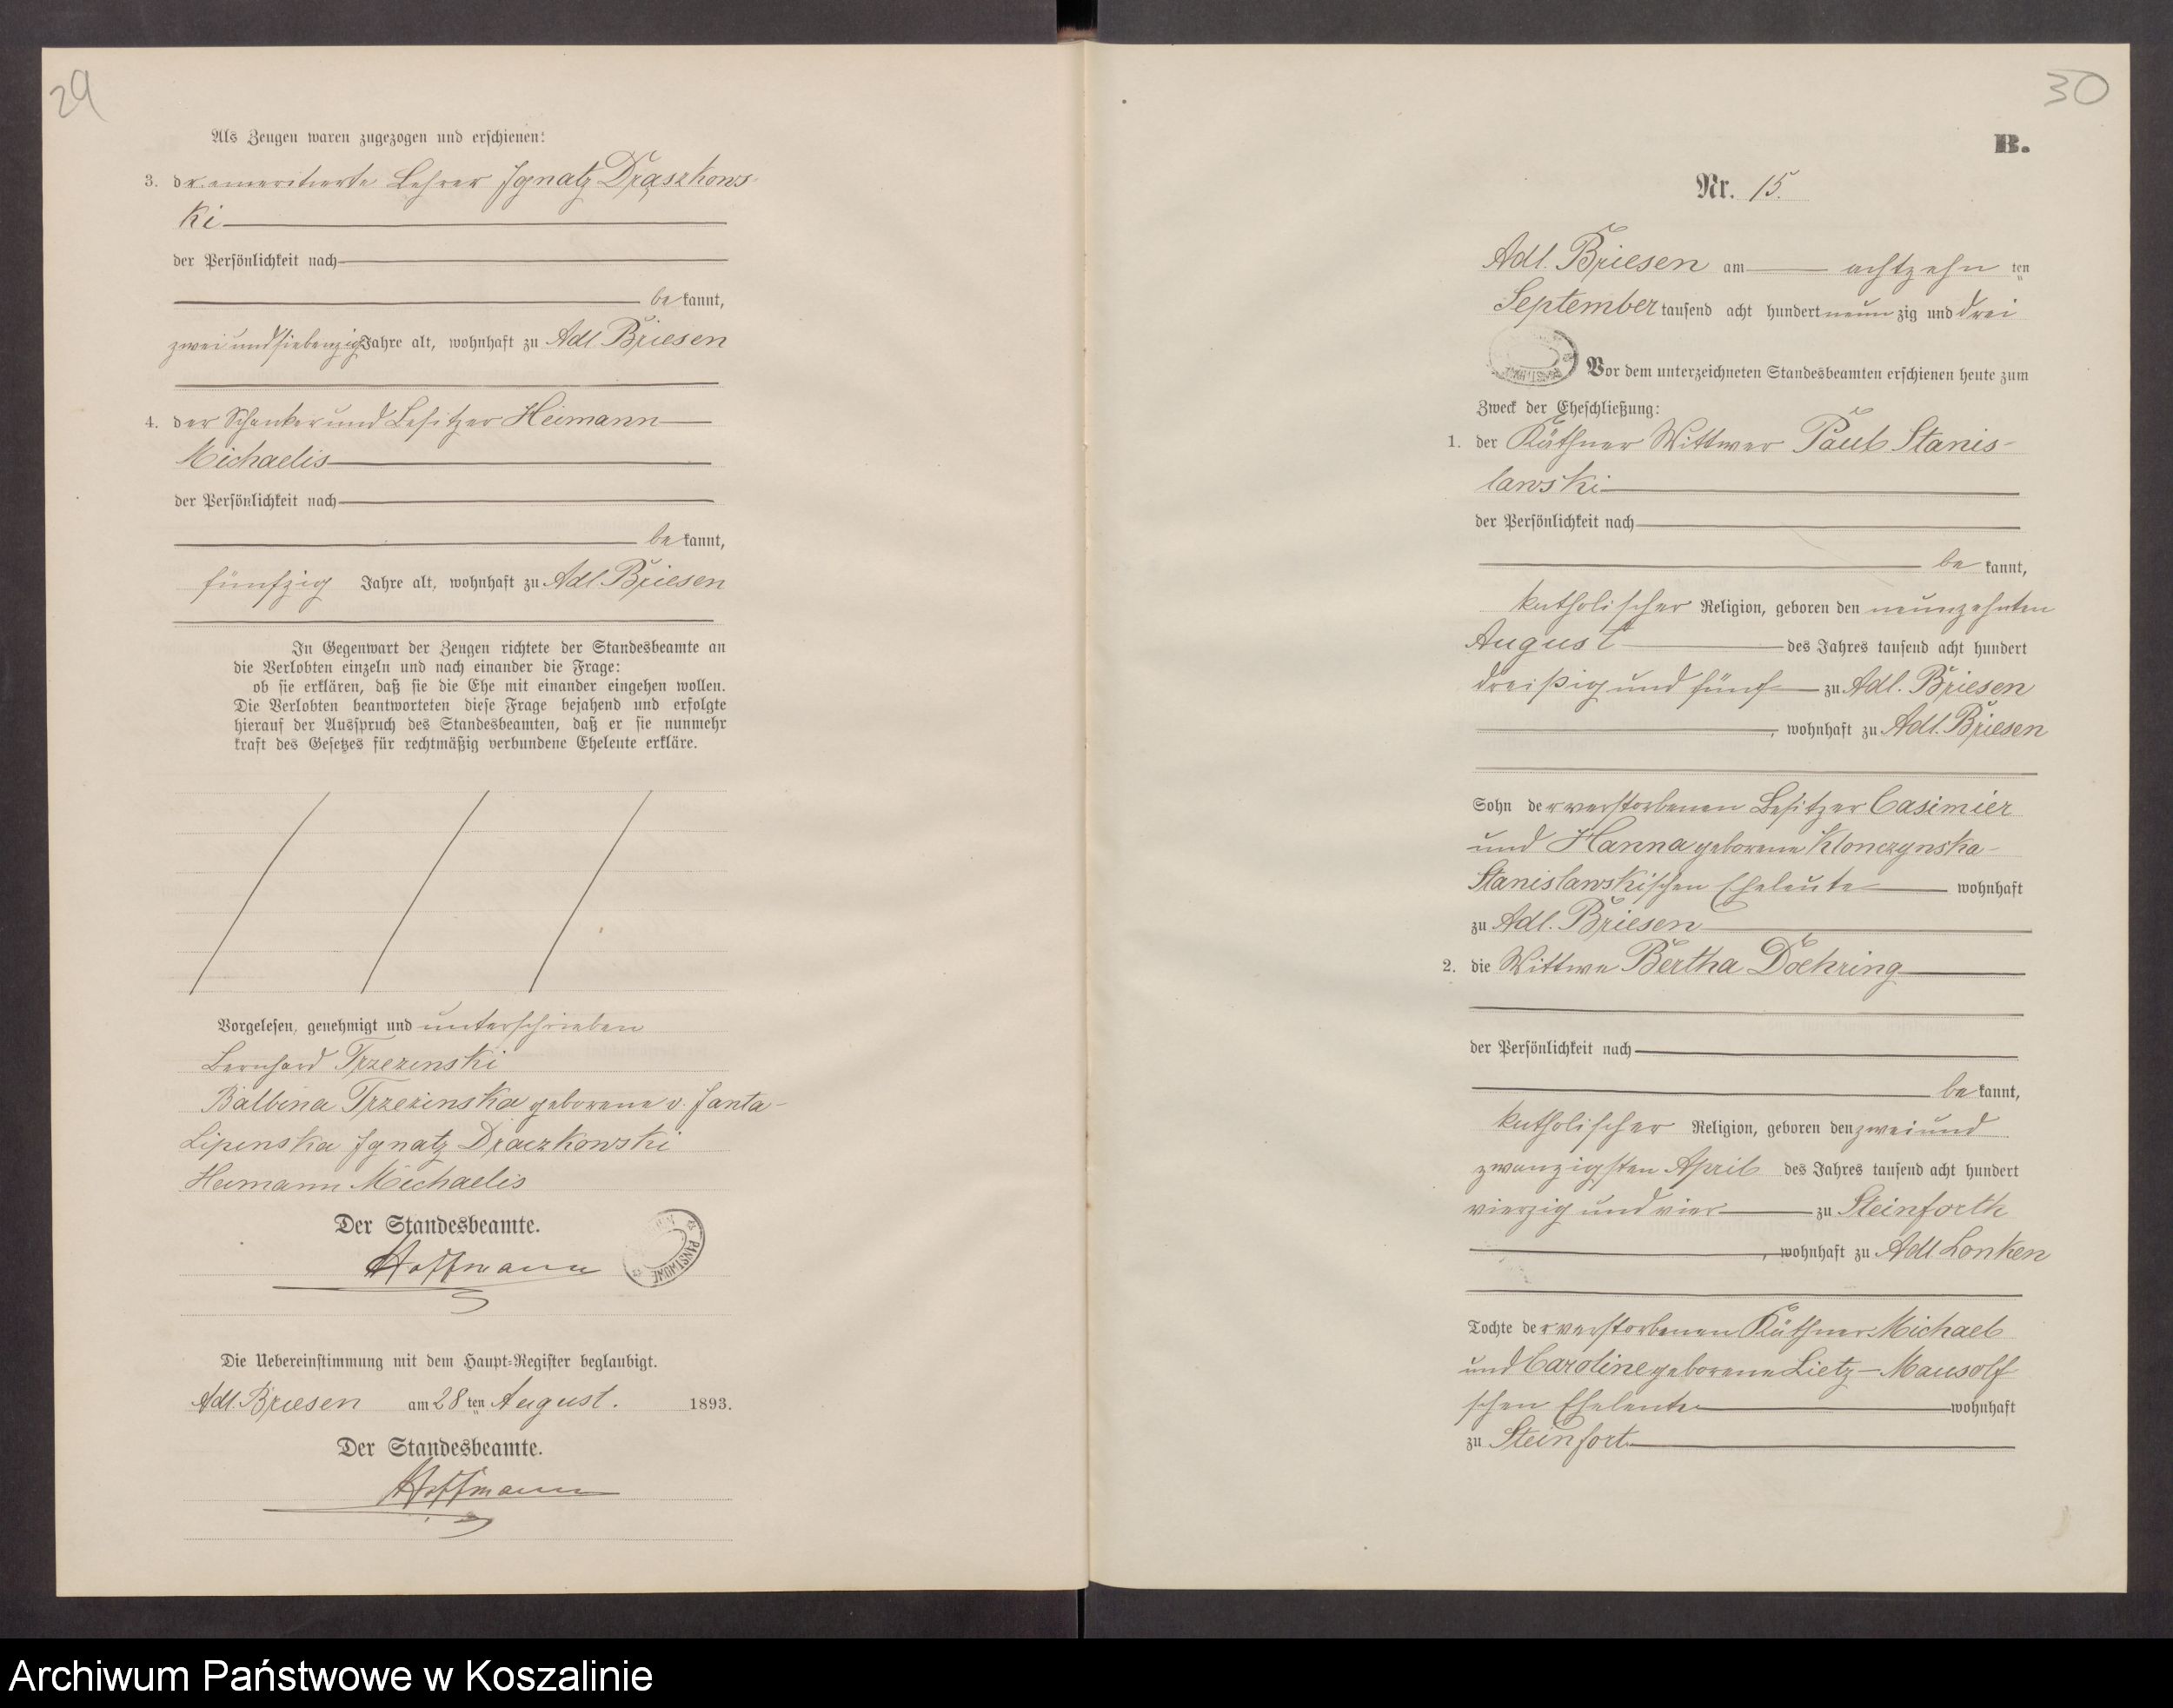 29
Als Zeugen waren zugezogen und erschienen:
3. der emeritierte Lehrer Ignatz Draszkows-
ki
der Persönlichkeit nach
be kannt,
zwei und siebenzig Jahre alt, wohnhaft zu Adl. Briesen
4. der Schenker und Besitzer Heimann
Michaelis
der Persönlichkeit nach
be kannt,
fünfzig Jahre alt, wohnhaft zu Adl. Briesen
In Gegenwart der Zeugen richtete der Standesbeamte an
die Verlobten einzeln und nach einander die Frage:
ob sie erklären, daß sie die Ehe mit einander eingehen wollen.
Die Verlobten beantworteten diese Frage bejahend und erfolgte
hierauf der Ausspruch des Standesbeamten, daß er sie nunmehr
kraft des Gesetzes für rechtmäßig verbundene Eheleute erkläre.
Vorgelesen, genehmigt und unterschrieben
Bernhard Trzezinski
Balbina Trzezinska geborene v. Janta-
Lipinska Ignatz Draczkowski
Heimann Michaelis
Der Standesbeamte.
Hoffmann
Die Uebereinstimmung mit dem Haupt-Register beglaubigt.
Adl. Briesen am 28 ten August. 1893.
Der Standesbeamte.
Hoffmann
30
B.
Nr. 15.
Adl. Briesen am achtzehn ten
September tausend acht hundert neun zig und drei
Vor dem unterzeichneten Standesbeamten erschienen heute zum
Zweck der Eheschließung:
1. der Käthner Wittwer Paul Stanis-
lawski
der Persönlichkeit nach
be kannt,
katholischer Religion, geboren den neunzehnten
August des Jahres tausend acht hundert
dreißig und fünf zu Adl. Briesen
, wohnhaft zu Adl. Briesen
Sohn der verstorbenen Besitzer Casimier
und Hanna geborene Klonczynska-
Stanislawskischen Eheleute wohnhaft
zu Adl. Briesen
2. die Wittwe Bertha Doehring
der Persönlichkeit nach
be kannt,
katholischer Religion, geboren den zwei und
zwanzigsten April des Jahres tausend acht hundert
vierzig und vier zu Steinforth
, wohnhaft zu Adl. Lonken
Tochte der verstorbenen Käthner Michael
und Caroline geborene Lietz-Mausolf-
schen Eheleute wohnhaft
zu Steinfort
Archiwum Państwowe w Koszalinie